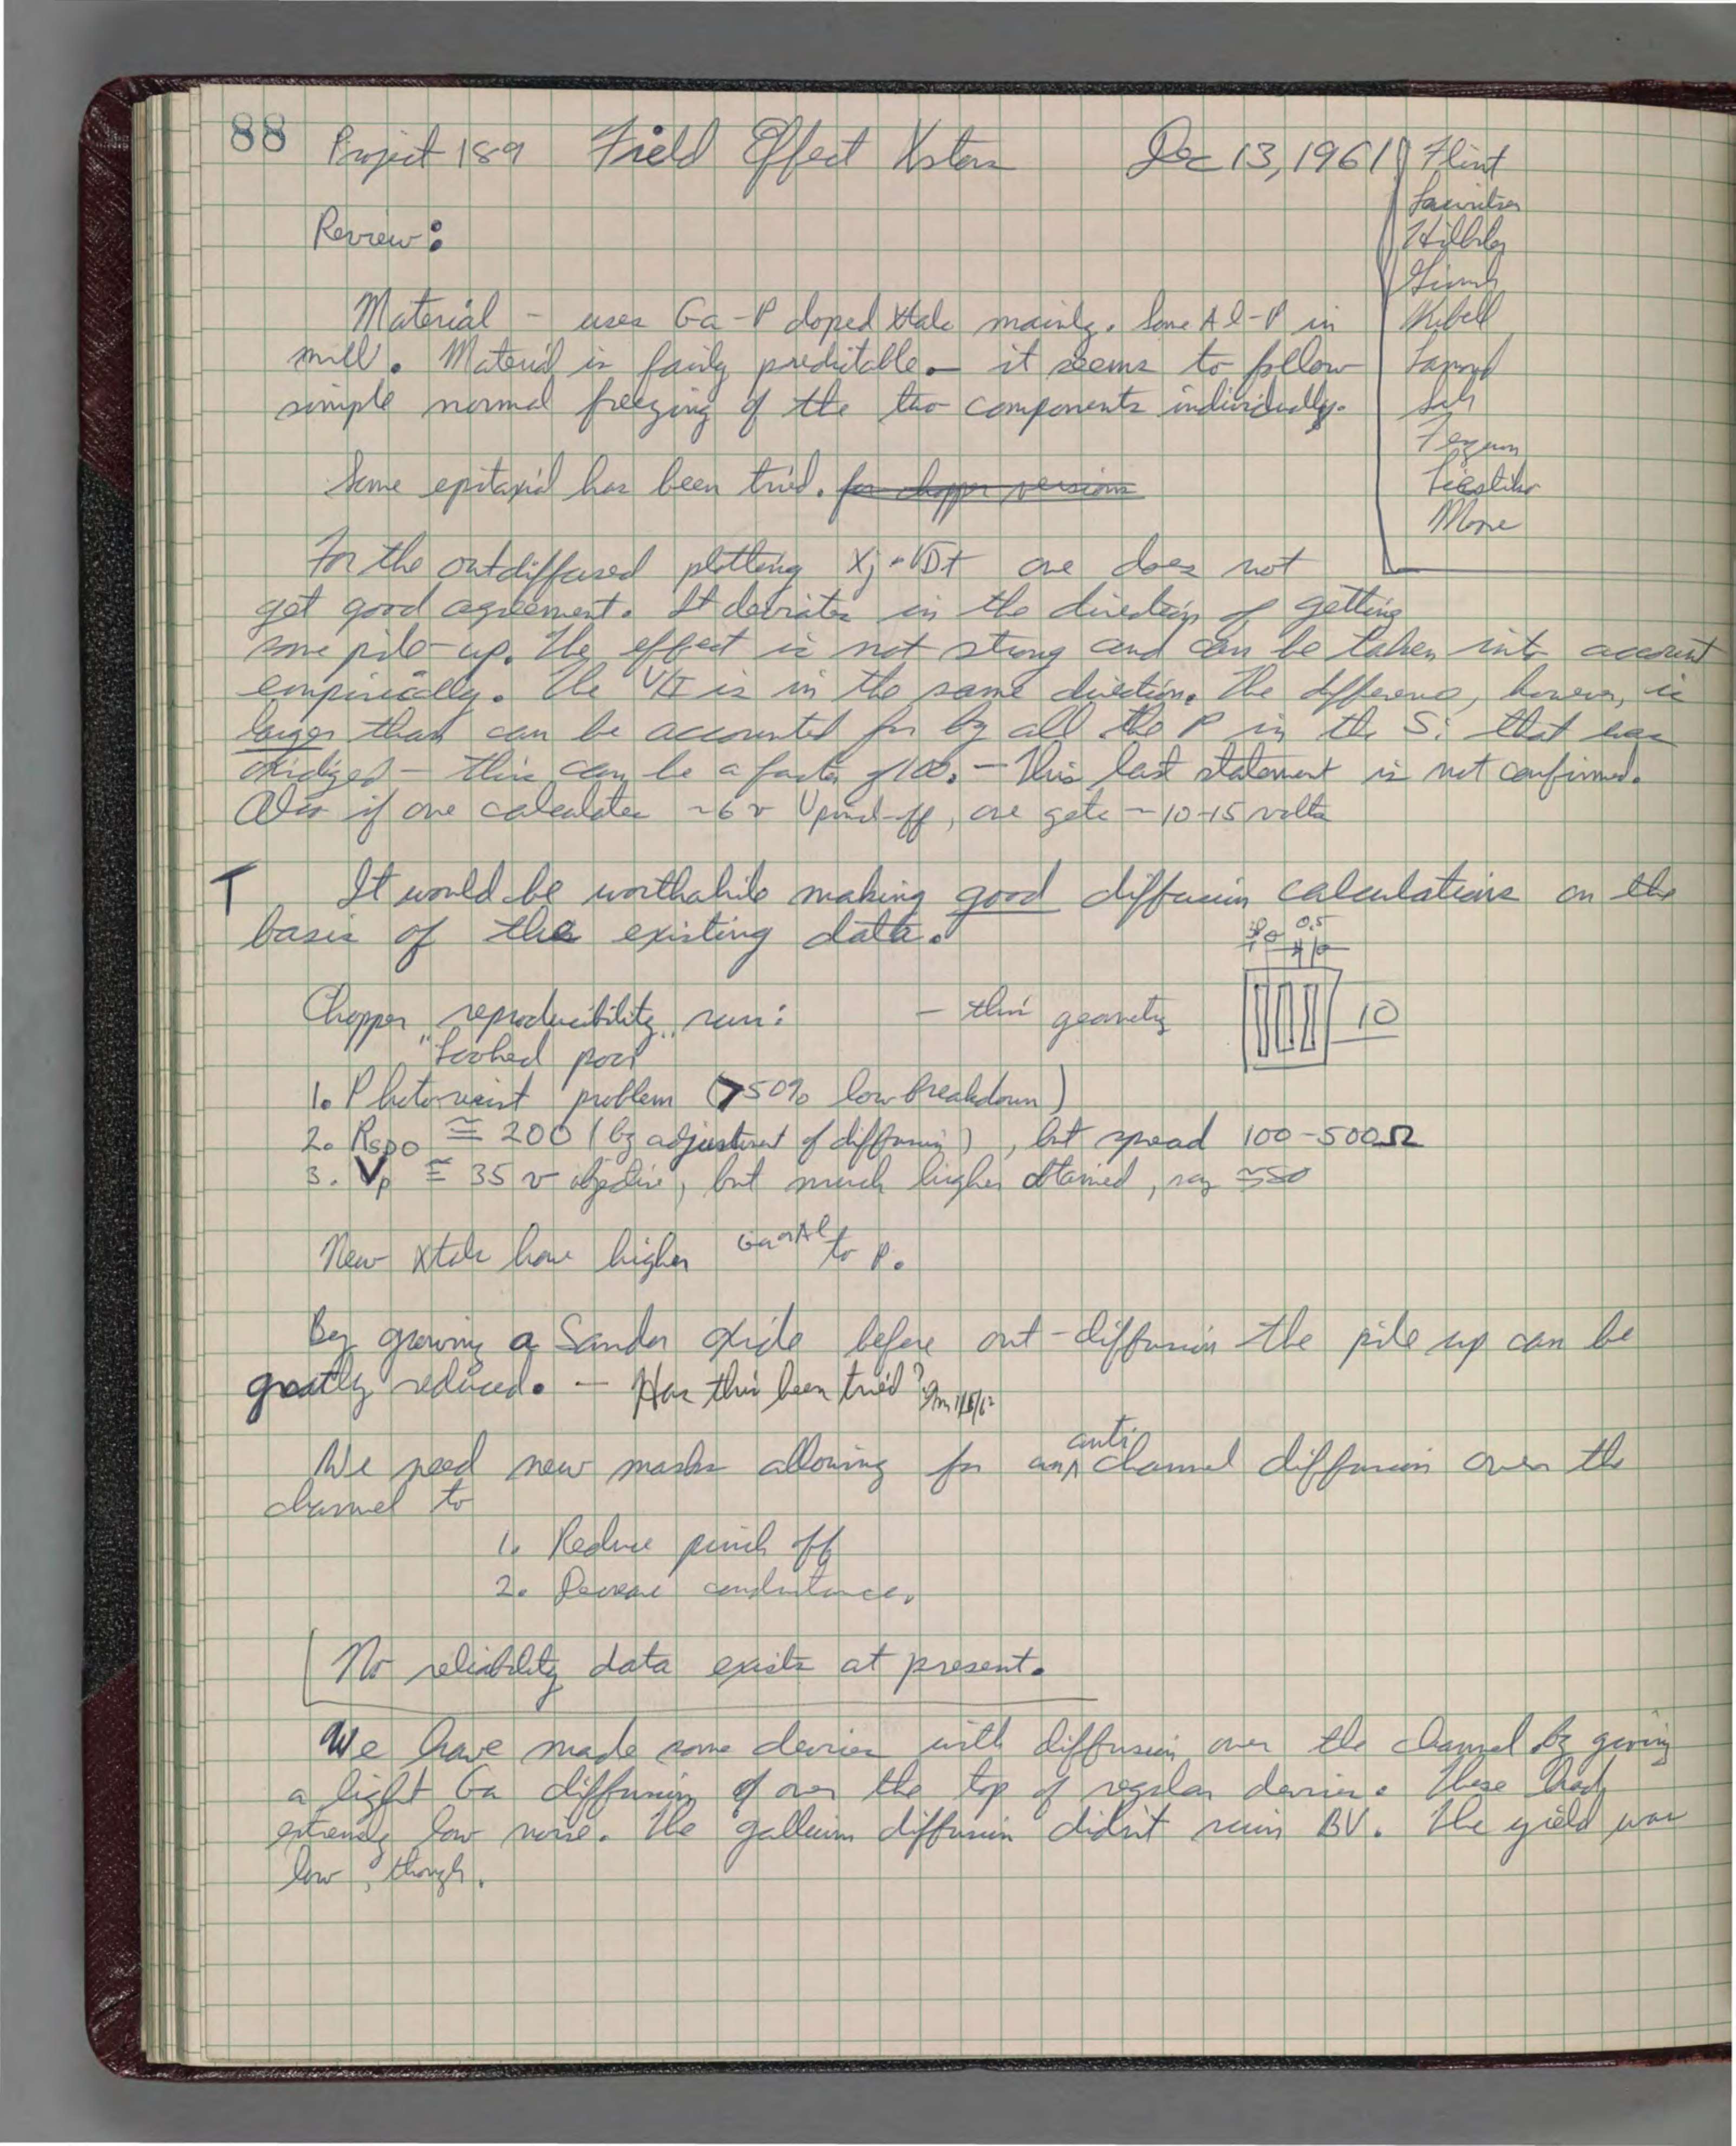 88 Project 189 Field Effect Xstors Dec 13, 1961 Flint
Hillbley
Kibell
Sah
Ferguson
Liestiko
Moore
Review:
Material - uses Ga-P doped xtals mainly. Some Al-P in
mill. Material is fairly predictable - it seems to follow
simple normal freezing of the two components individually.
Some epitaxial has been tried. for chopper versions
For the outdiffused plotting Xj - √Dt one does not
get good agreement. It deviates in the direction of getting
some pile-up. The effect is not strong and can be taken into account
empirically. The V/I is in the same direction. The difference, however, is
larger than can be accounted for by all the P in the Si that was
oxidized - this can be a factor of 100. - This last statement is not confirmed.
Also if one calculates ~6 v Vpinch-off, one gets ~10-15 volts
T It would be worthwhile making good diffusion calculations on the
basis of the existing data.
0.5
Chopper "reproducibility" run: - thin geometry 10
Looked poor
1. Photoresist problem (>50% low breakdown)
2. RSDO ≅ 200 (by adjustment of diffusion), but spread 100-500Ω
3. Vp ≅ 35 v objective, but much higher obtained, say ≅50
New xtals have higher Ga or Al to P.
By growing a Sandor oxide before out-diffusion the pile up can be
greatly reduced. - Has this been tried? GM 1/8/62
We need new masks allowing for an anti channel diffusion over the
channel to
1. Reduce pinch off
2. Decrease conductance.
No reliability data exists at present.
We have made some devices with diffusion over the channel by giving
a light Ga diffusion of over the top of regular devices. These had
extremely low noise. The gallium diffusion didn't ruin BV. The yield was
low, though.